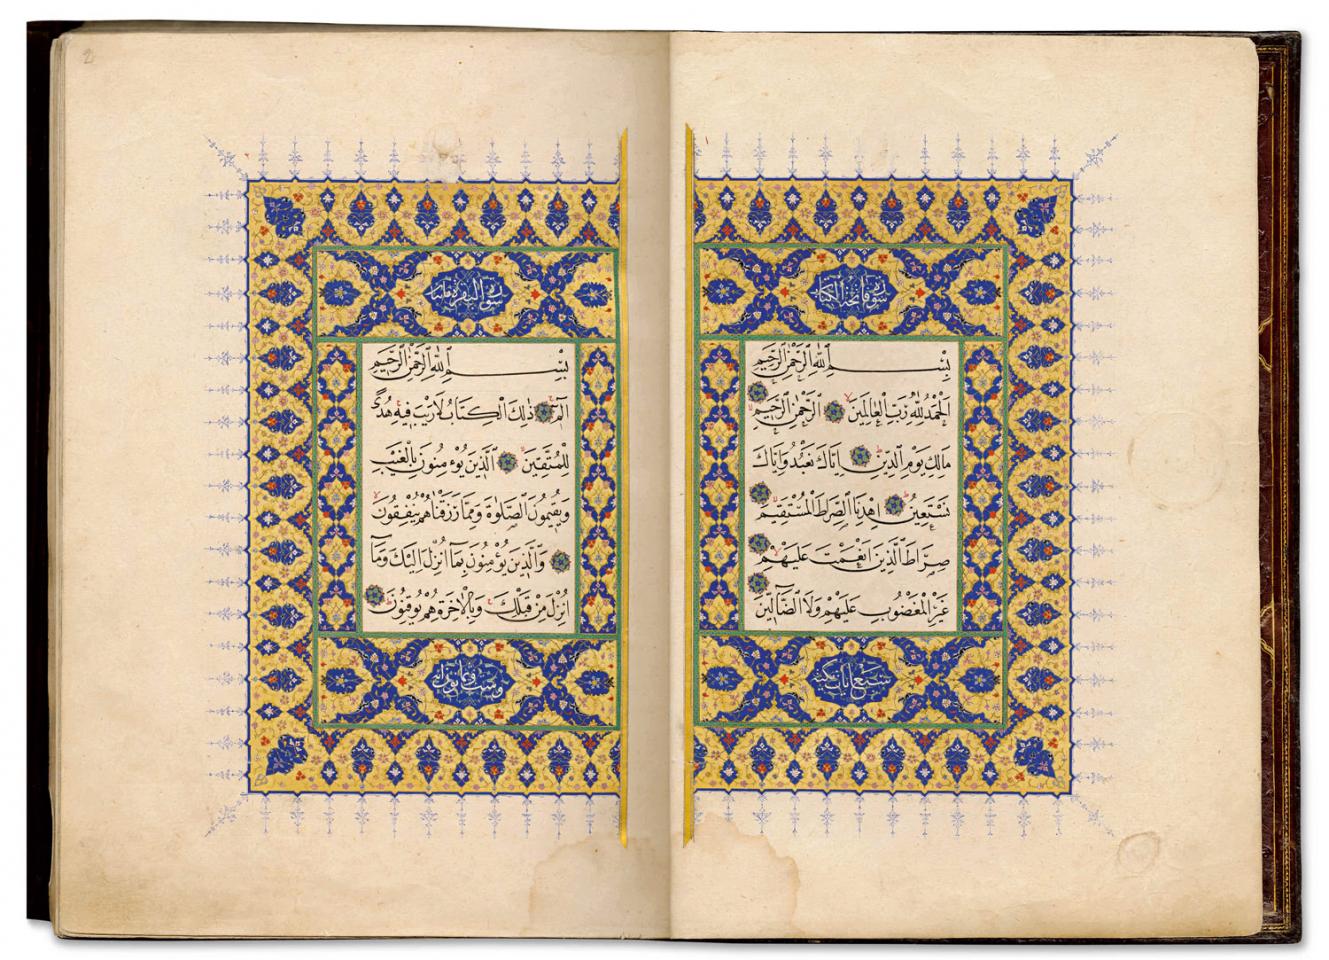 سورة فاتحة الكتاب
بِسْمِ اللّٰهِ الرَّحْمٰنِ الرَّحٖيمِ
اَلْحَمْدُ لِلّٰهِ رَبِّ الْعَالَمٖينَ الرَّحْمٰنِ الرَّحٖيمِ
مَالِكِ يَوْمِ الدّٖينِ اِيَّاكَ نَعْبُدُ وَاِيَّاكَ
نَسْتَعٖينُ اِهْدِنَا الصِّرَاطَ الْمُسْتَقٖيمَ
صِرَاطَ الَّذٖينَ اَنْعَمْتَ عَلَيْهِمْ
غَيْرِ الْمَغْضُوبِ عَلَيْهِمْ وَلَا الضَّٓالّٖينَ
سبع ايات مكية
سورة البقرة مائتا
بِسْمِ اللّٰهِ الرَّحْمٰنِ الرَّحٖيمِ
الٓمٓ ذٰلِكَ الْكِتَابُ لَا رَيْبَ فٖيهِ هُدًى
لِلْمُتَّقٖينَ اَلَّذٖينَ يُؤْمِنُونَ بِالْغَيْبِ
وَيُقٖيمُونَ الصَّلٰوةَ وَمِمَّا رَزَقْنَاهُمْ يُنْفِقُونَ
وَالَّذٖينَ يُؤْمِنُونَ بِمَٓا اُنْزِلَ اِلَيْكَ وَمَٓا
اُنْزِلَ مِنْ قَبْلِكَ وَبِالْاٰخِرَةِ هُمْ يُوقِنُونَ
وست وثمانون اية
2